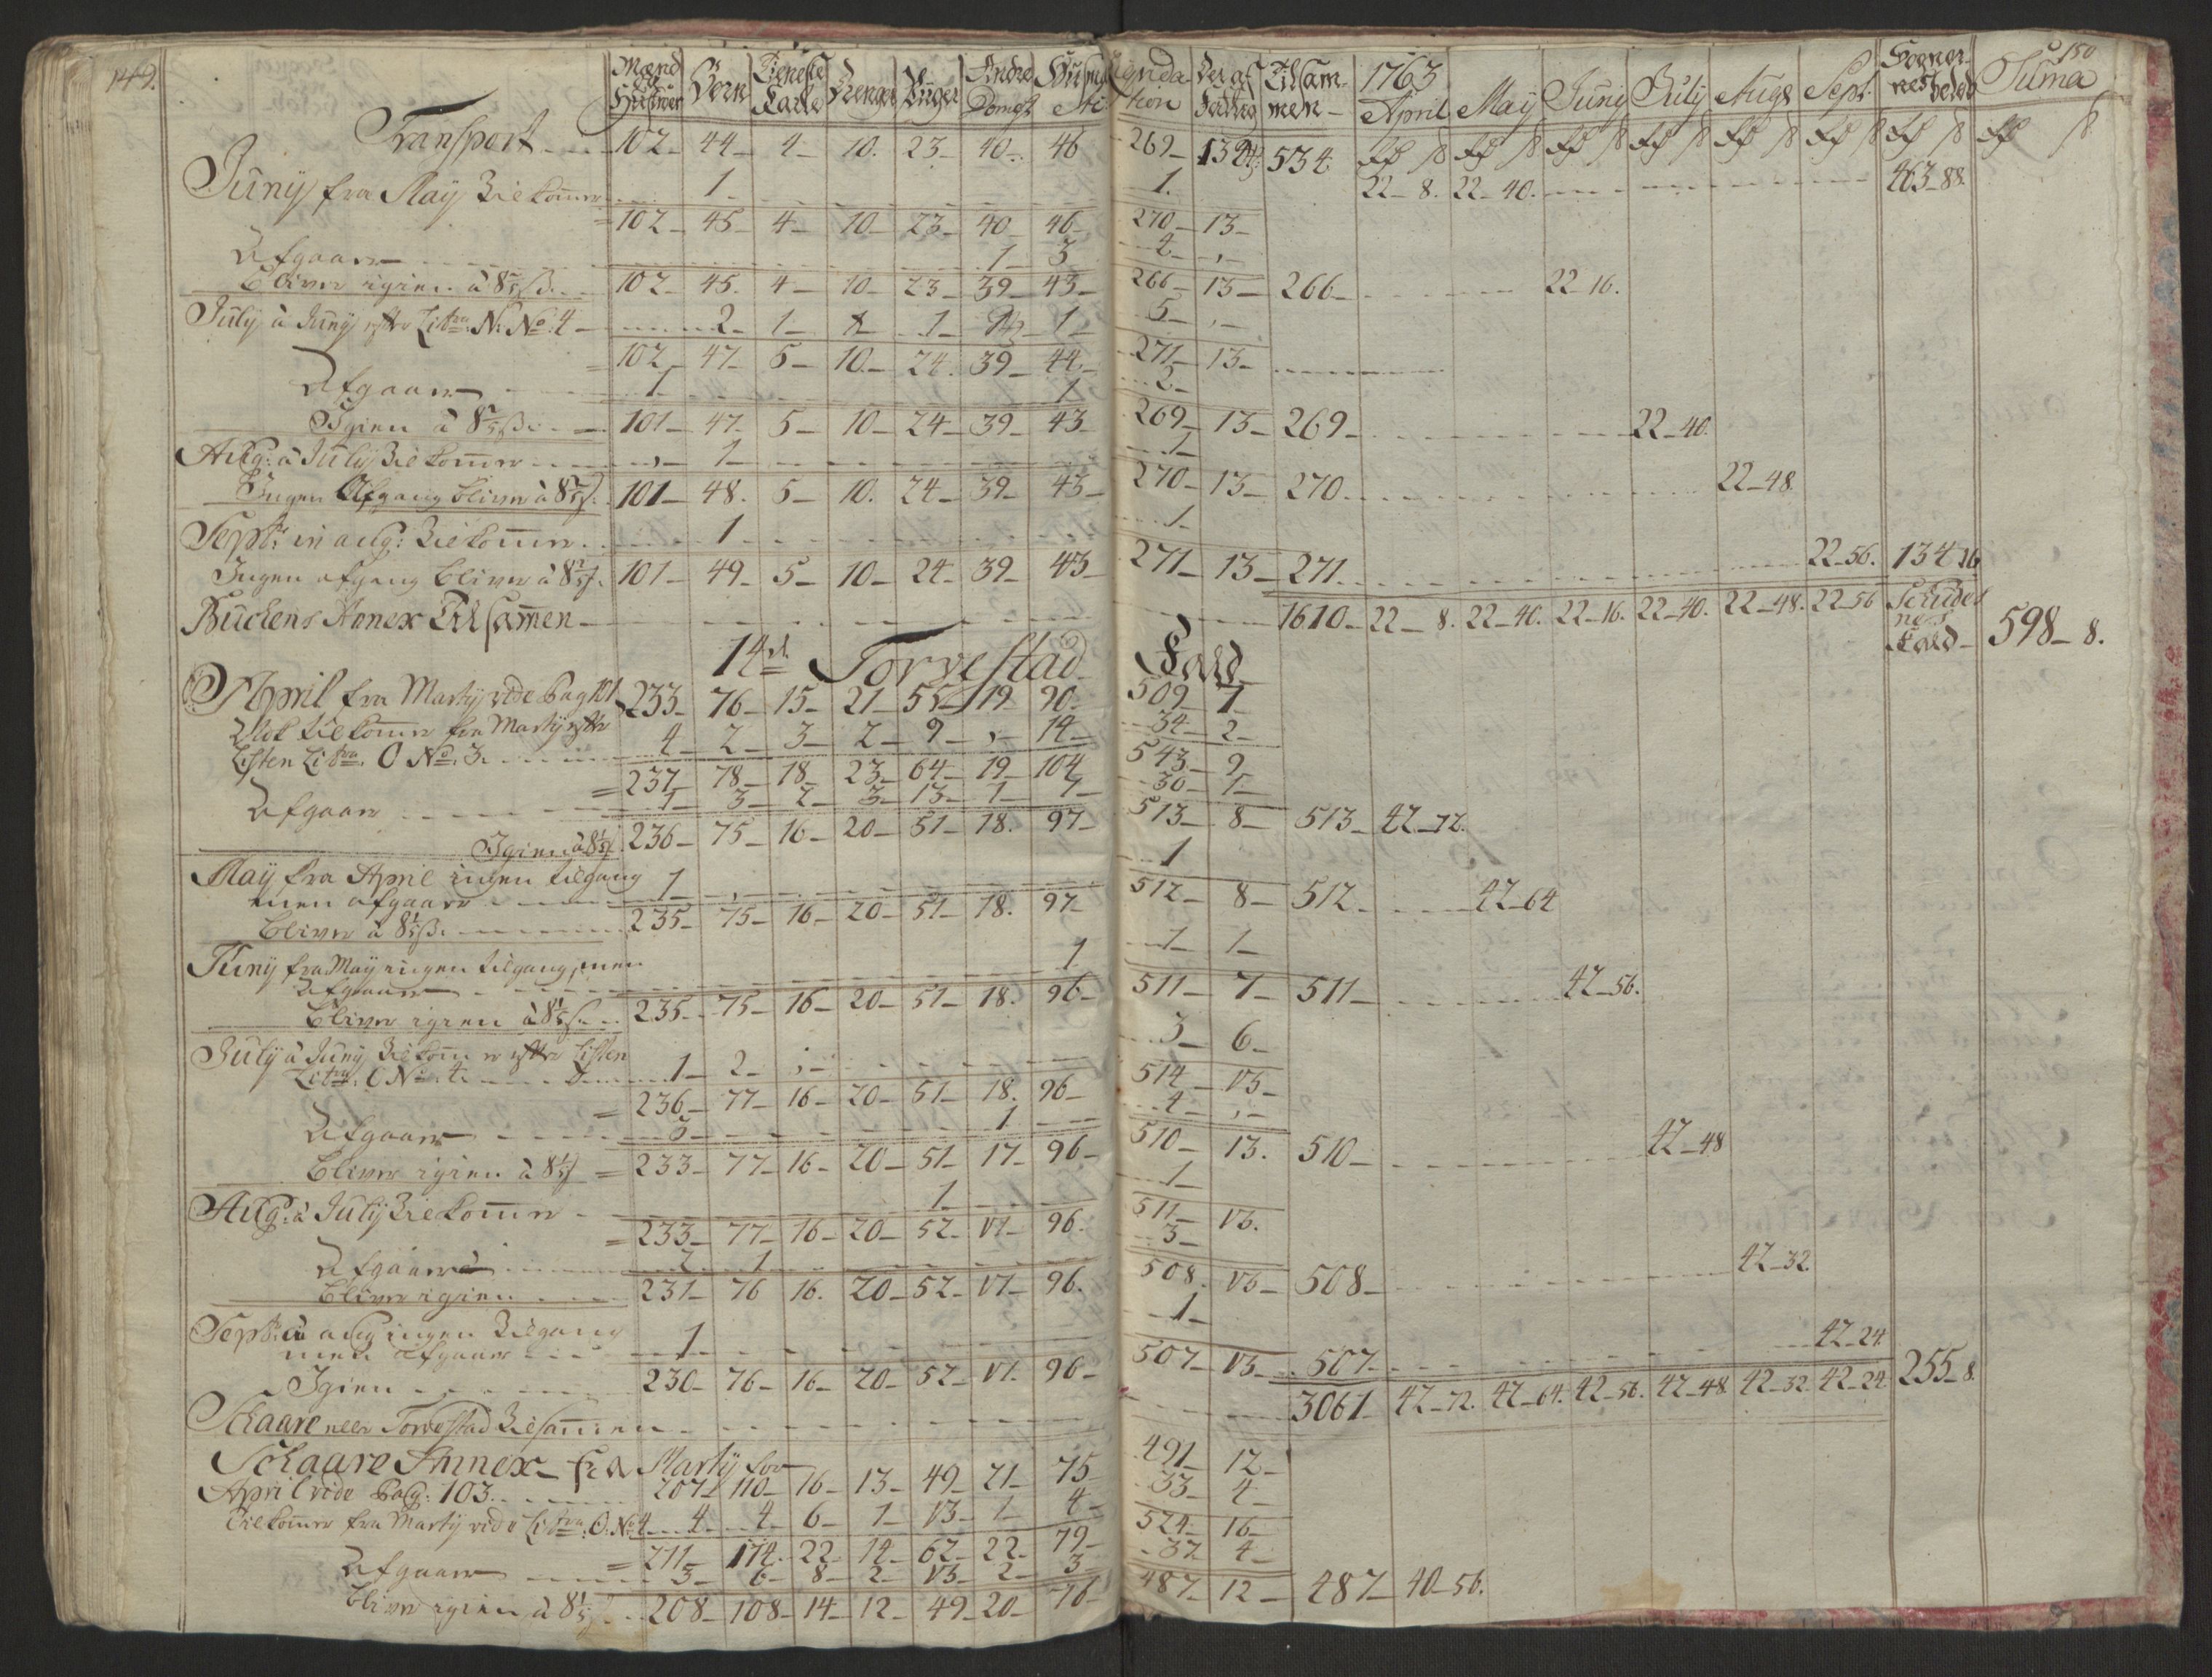 149.
150
Mænd og Hustruer Börn Tieneste Karle Drenge Piger Andre Domest: Huusmænd
Til Sammen 1763 April May Juny July Aug: Sept: Sogner nes beløb Suma
Transport 102 44 4 10. 23 40 46 269 13 534 Rd ß Rd ß Rd ß Rd ß Rd ß Rd ß Rd ß Rd ß
Juny fra May Tilkomer 1 1. 22 8. 22 40. 463 88
102 45 4 10 23 40 46 270 13
Afgaar 1 3 4
bliver igien à 8 ß. 102 45. 4 10 23 39 43 266 13 266 22 16.
July à Juny efter Litra N. No. 4 2 1 1 1 5
102 47 5 10 24. 39 44 271 13
Afgaar 1 1 2
Igien à 8 ß. 101 47 5 10 24 39 43 269 13 269 22 40.
Aug: à July Tilkomer 1 1
Ingen Afgang bliver à 8 ß. 101 48. 5 10. 24 39 43 270 13 270 22 48
Septr: à aug: Tilkomer 1 1
Ingen afgang bliver à 8 ß. 101 49 5 10 24 39 43 271 13 271 22 56. 134 16
Buckens Annex Tilsamen 1610 22 8. 22 40. 22 16. 22 40. 22 48. 22 56 598 8.
14de Torvestad Gield
April fra Martij vide pag 101 233 76 15 21 55 19 90 509 7
Tilkomer fra Martij efter 4 2 3 2 9 14 34 2
Listen Litra. O No. 3.
237 78 18 23 64 19 104 543 9
Afgaar 1 3 2 3 13 1 7 30 1
Igien à 8 ß 236 75 16 20 51 18. 97 513 8 513 42 72.
May fra April ingen tilgang
men afgaar 1 1
bliver à 8 ß. 235 75 16 20 51 18. 97 512 8 512 42 64
Juny fra May ingen tilgang, men
Afgaar 1 1 1
bliver igien à 8 ß. 235 75 16 20 51 18. 96 511 7 511 42 56.
July à Juny Tilkomer efter Listen
Litra: O No: 4. 1 2 3 6
236 77 16 20 51 18. 96 514 13
Afgaar 3 1 4
bliver igien à 8 ß 233 77 16 20 51 17 96 510 13. 510 42 48
Aug: à July Tilkomer 1 1
233 77 16 20 52 17 96. 511 13.
Afgaar 2 1 3
bliver igien 231 76 16. 20 52 17 96. 508. 13 508 42 32
Septr: à aug ingen Tilgang
men afgaar 1 1
Igien 230 76 16 20 52 17. 96 507 13 507 42 24
Schaare eller Torvestad Tilsamen 3061 42 72. 42 64. 42 56. 42 48 42 32 42 24 255 8.
Schaare Annex fra Martij for
April vide pag: 103. 207 110 16 13 49 21 75 491 12
Tilkomer fra Martij vide Litra: O. No 4 4 4 6 1 13 1 4 33 4
211 114. 22 14 62 22 79 524 16
Afgaar 3 6 8 2 13 2 3 37 4
bliver igien à 8 ß. 208 108 14 12 49 20 76 487 12 487 40 56.